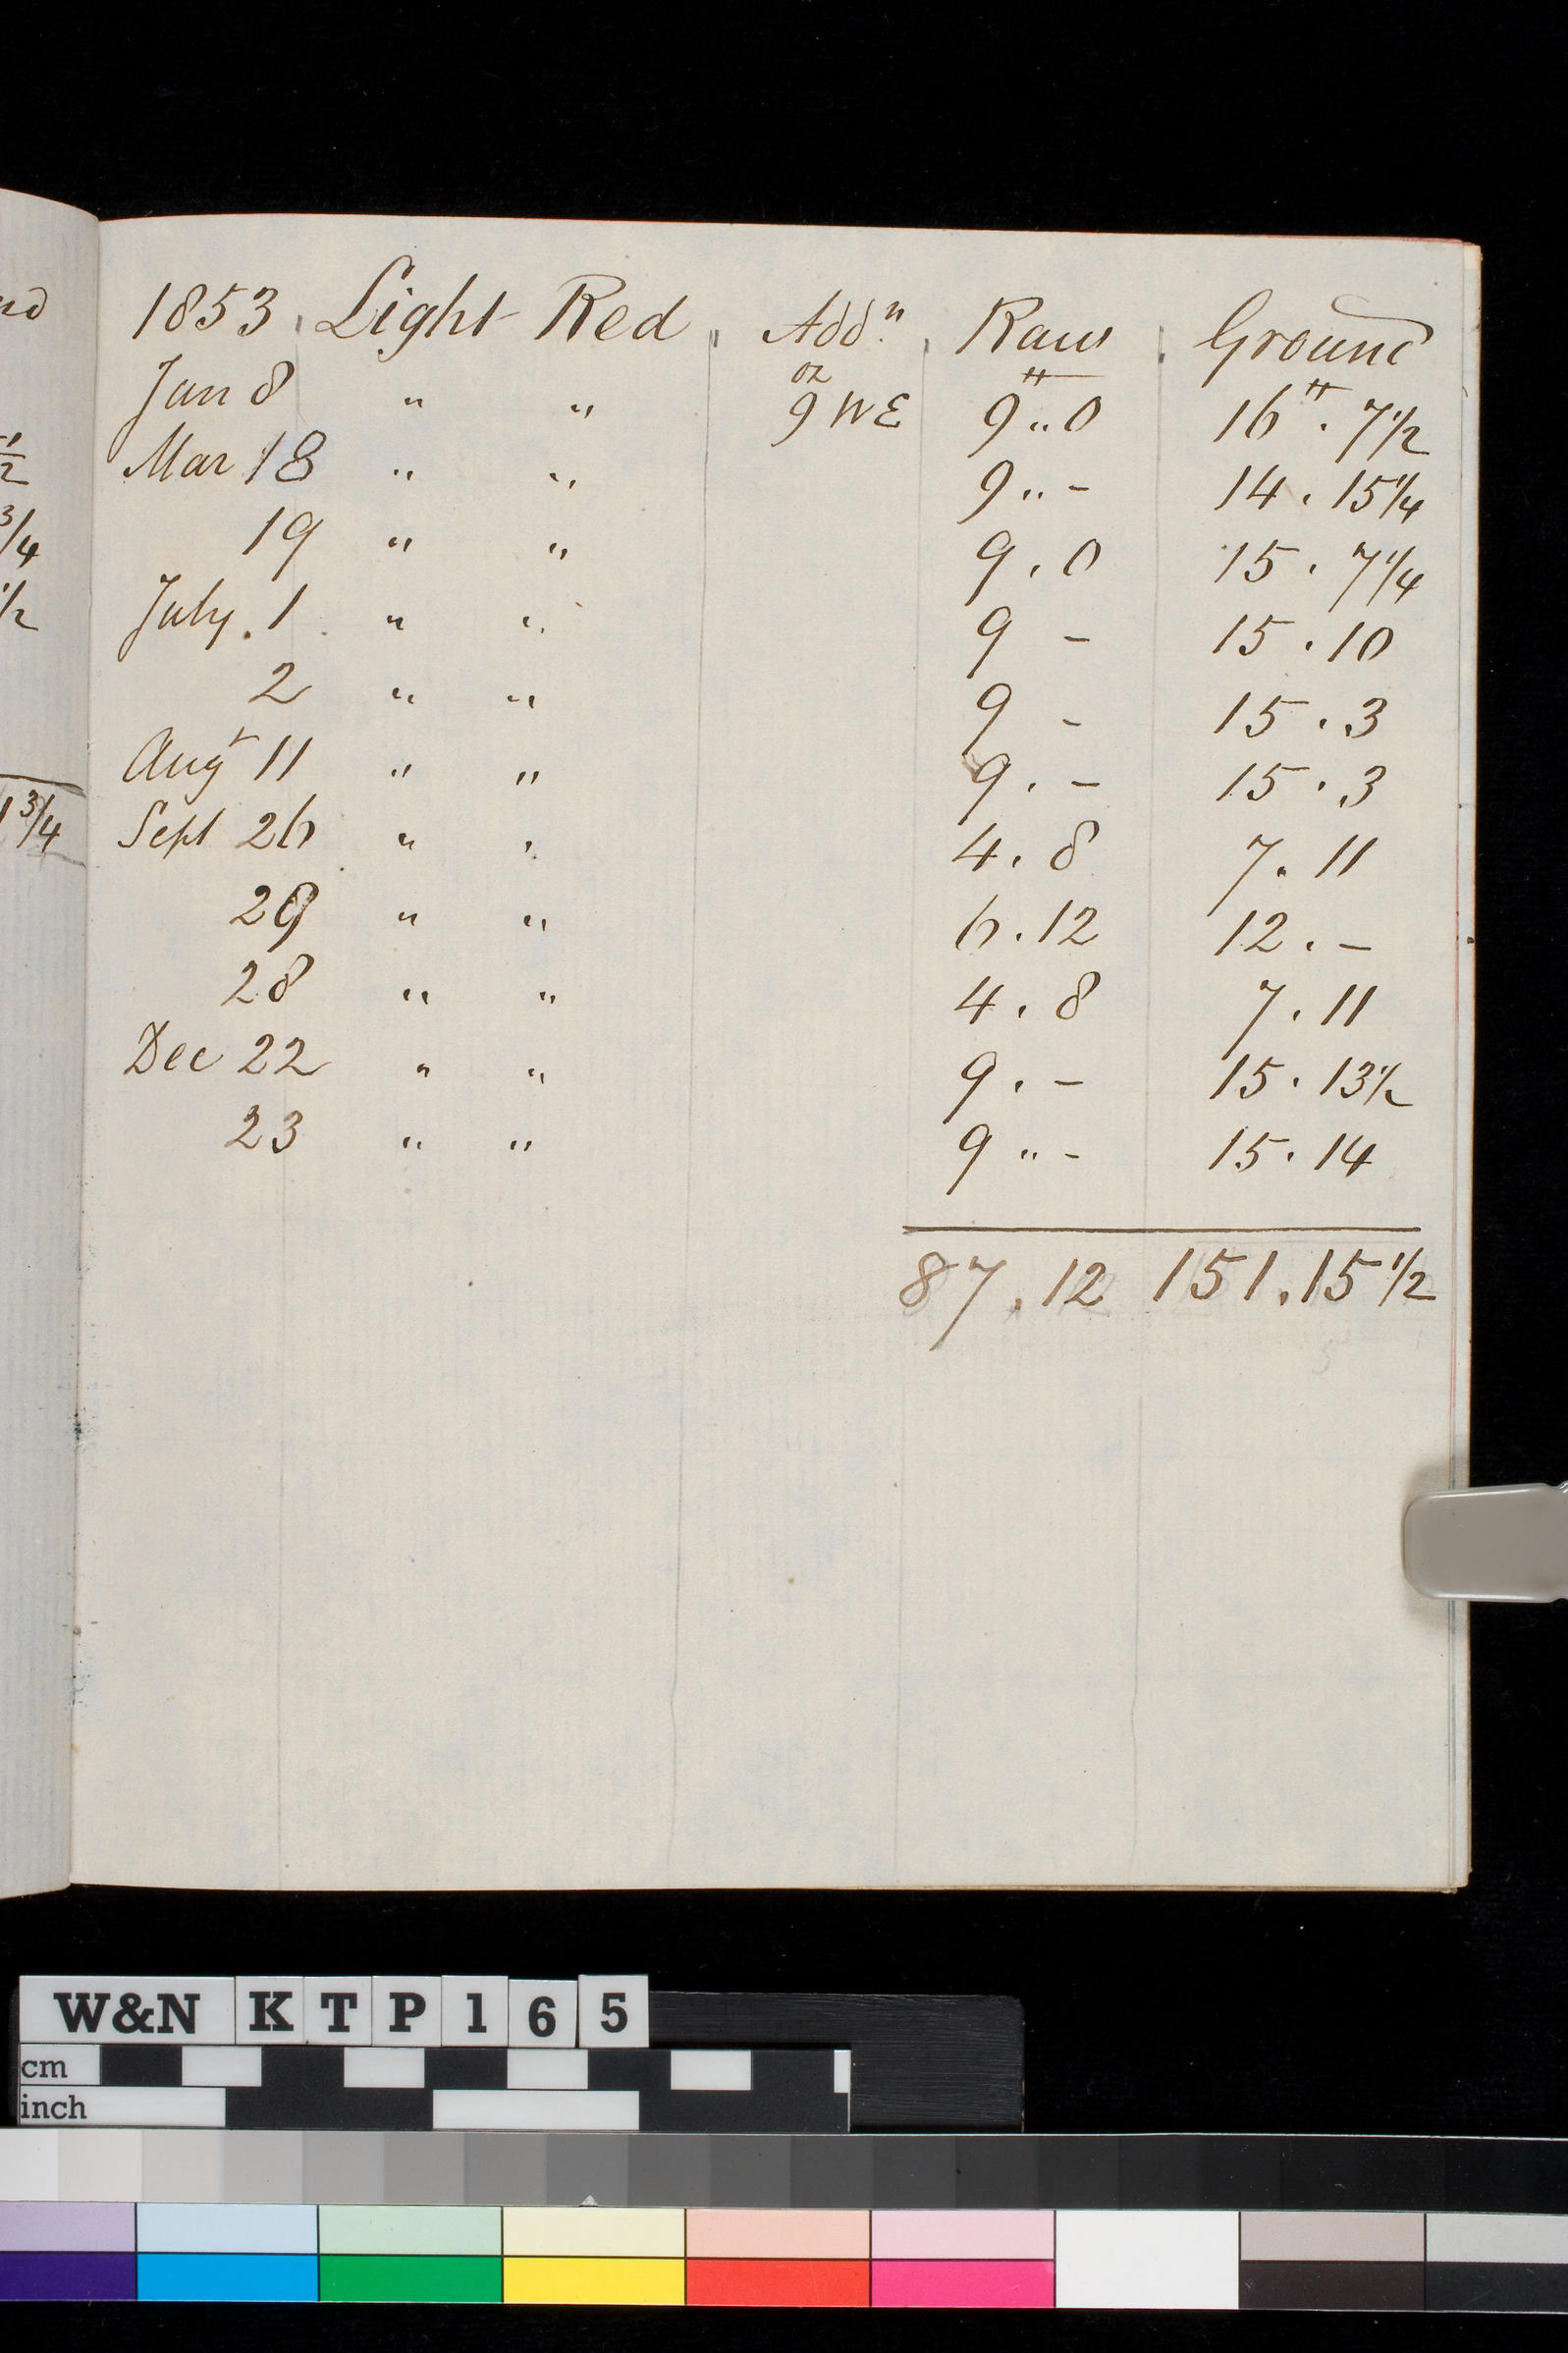 1853 Light Red Addn Raw Ground
Jan 8 " " 9 oz WE 9 " 0 16 . 7 1/2
Mar 18 " " 9 " - 14 . 15 1/4
19 " " 9 . 0 15 . 7 1/4
July . 1 " " 9 - 15 . 10
2 " " 9 - 15 . 3
Augt 11 " " 9 . - 15 . 3
Sept 26 " " 4 . 8 7 . 11
29 " " 6 . 12 12 . -
28 " " 4 . 8 7 . 11
Dec 22 " " 9 . - 15 . 13 1/2
23 " " 9 " - 15 . 14
87 . 12 151 . 15 1/2
1/2
3/4
1/2
1 3/4
W&N KTP165
cm
inch